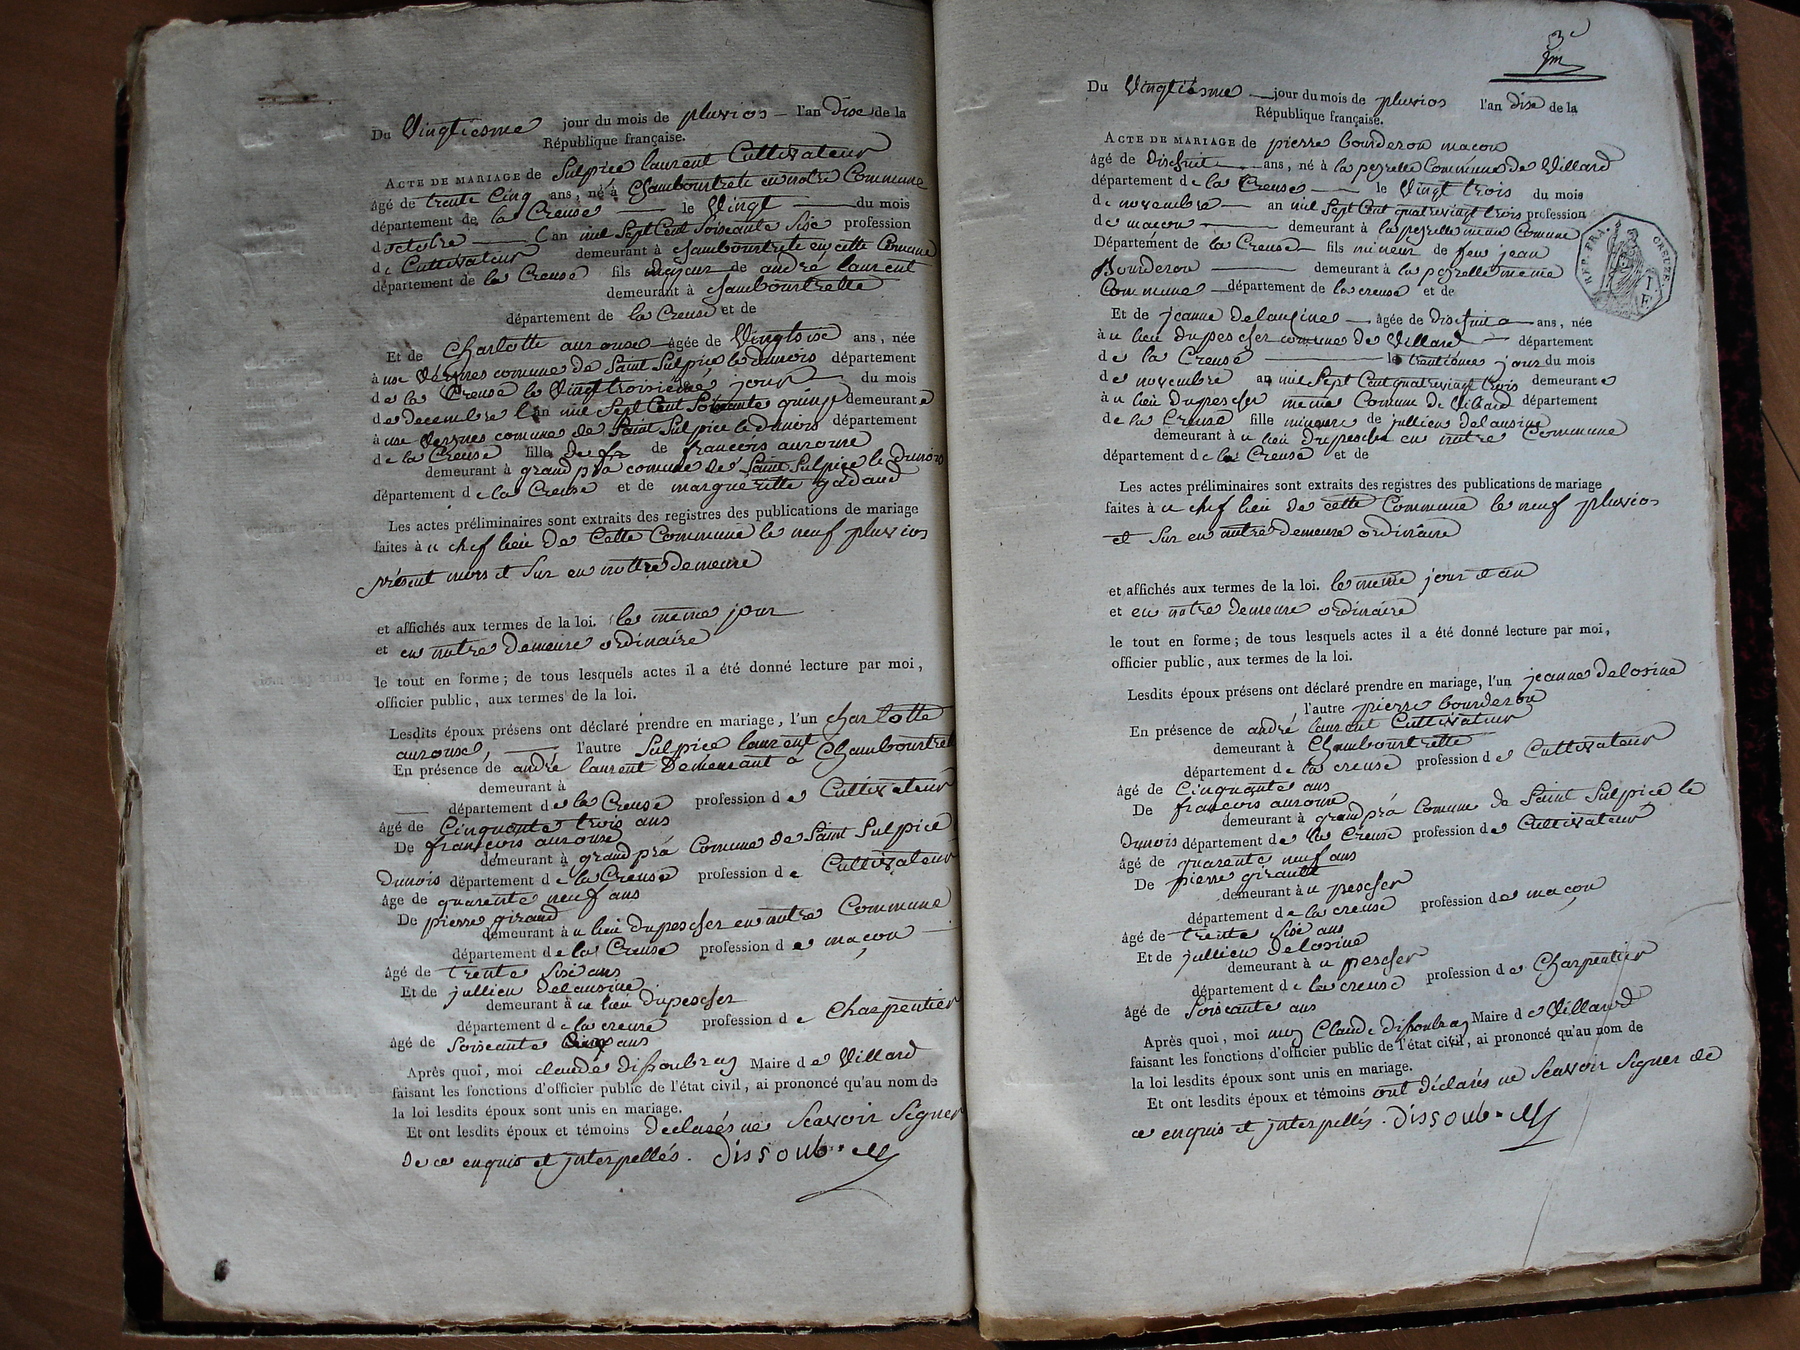 Du Vingtiesme jour du mois de pluvios l'an dise de la
République française.
ACTE DE MARIAGE de Sulpice laurent Cultivateur
âgé de trente Cinq ans, né à Chambourtrete en notre Commune
département de la Creuse le Vingt du mois
d'octobre l'an mil Sept Cent Soiscante Sise profession
de Cultivateur demeurant à Chambourtrete en cette Comune
département de la Creuse fils majeur de andré laurent
demeurant à Chambourtrette
département de la Creuse et de
Et de Charlotte aurouse âgée de Vingtsise ans, née
à aux Vergnes comune de Saint Sulpice le dunois département
de la Creuse le Vingttroisième jour du mois
de decembre l'an mil Sept Cent Soixante quinse demeurante
à aux Vergnes comune de Saint Sulpice le dunois département
de la Creuse fille de francois aurouse
demeurant à grand pra comune de Saint Sulpice le dunois
département de la Creuse et de marguéritte gadaud
Les actes préliminaires sont extraits des registres des publications de mariage
faites à u chef lieu de Cette Commune le neuf pluvios
présent mois et Sur en nottre demeure
et affichés aux termes de la loi. le meme jour
et en notre demeure ordinaire
le tout en forme ; de tous lesquels actes il a été donné lecture par moi,
officier public, aux termes de la loi.
Lesdits époux présens ont déclaré prendre en mariage, l'un charlotte
aurouse, l'autre Sulpice laurent
En présence de andré laurent Demeurant a Chambourtrete
demeurant à
département de la Creuse profession de Cultivateur
âgé de Cinquante trois ans
De francois aurouse
demeurant à grand pra Comune de Saint Sulpice
Dunois département de la Creuse profession de Cultivateur
âge de quarente neuf ans
De pierre giraud
demeurant à u lieu dupescher en notre Commune
département de la Creuse profession de maçon
âgé de trente Sise ans
Et de jullien delausine
demeurant à u lieu dupescher
département de la creuse profession de Charpentier
âgé de Soiscante Cinq ans
Après quoi, moi claude dissoubray Maire de Villard
faisant les fonctions d'officier public de l'état civil, ai prononcé qu'au nom de
la loi lesdits époux sont unis en mariage.
Et ont lesdits époux et témoins declarés ne Scavoir Signer
De ce enquis et interpellés. dissoub. M
3e
Du Vingtiésme jour du mois de pluvios l'an dise de la
République française.
ACTE DE MARIAGE de pierre bourderon macon
âgé de Dischuit ans, né à la peyrelle Commune de Villard
département de la Creuse le Vingt trois du mois
de novembre an mil Sept Cent quatrevingt trois profession
de macon demeurant à la peyrelle meme Comune
Département de la Creuse fils mineur de feu jean
Bourderon demeurant à la peyrelle meme
Commune département de la creuse et de
REP. FRA. CREUZE
Et de jeanne delausines âgée de Dischuit ans, née
à u lieu dupescher comune de Villard département
de la Creuse le trentiemes jour du mois
de novembre an mil Sept Cent quatrevingt trois demeurante
à u lieu dupescher meme Comune de Vilard département
de la Creuse fille mineure de jullien delausine
demeurant à u lieu dupescher en notre Commune
département de la Creuse et de
Les actes préliminaires sont extraits des registres des publications de mariage
faites à u chef lieu de cette Commune le neuf pluvios
et Sur en notre demeure ordinaire
et affichés aux termes de la loi. le meme jour et an
et en notre demeure ordinaire
le tout en forme ; de tous lesquels actes il a été donné lecture par moi,
officier public, aux termes de la loi.
Lesdits époux présens ont déclaré prendre en mariage, l'un jeanne delosine
l'autre pierre bourderon
En présence de andré laurent Cultivateur
demeurant à Chambourtrette
département de la creuse profession de Cultivateur
âgé de Cinquante ans
De francois aurouse
demeurant à grand pra Comune de Saint Sulpice le
Dunois département de la Creuse profession de Cultivateur
âgé de quarente neuf ans
De pierre giraud
demeurant à u pescher
département de la creuse profession de maçon
âgé de trente Sise ans
Et de jullien delosine
demeurant à u pescher
département de la creuse profession de Charpentier
âgé de Soiscante ans
Après quoi, moi moy Claude dissoubray Maire de Villard
faisant les fonctions d'officier public de l'état civil, ai prononcé qu'au nom de
la loi lesdits époux sont unis en mariage.
Et ont lesdits époux et témoins ont déclarés ne Scavoir Signer de
ce enquis et interpellés. dissoub. M